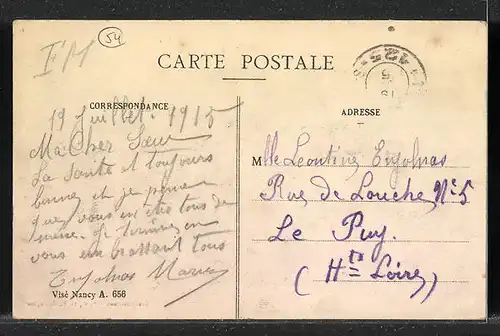 FM
54
CARTE POSTALE
CORRESPONDANCE
19 Juillet 1915
Ma Cher Sœur
La Santé et toujours
bonne et je pense
que vous en êtes tous de
même. Je termine en
vous embrassant tous
Enjolras
Visé Nancy A. 656
ADRESSE
Mlle Leontine Enjolras
Rue de Louche Nº 5
Le Puy
(Hte Loire)